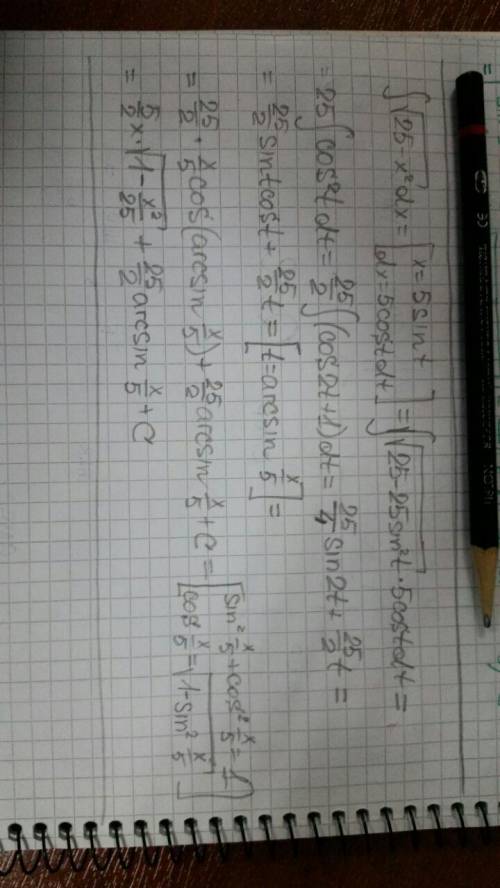 ∫√(25-x²)dx = [x=5sin t
dx=5cost dt] = ∫√(25-25sin²t)·5costdt =
= 25∫cos²t dt = 25/2 ∫(cos2t+1)dt = 25/4 sin2t + 25/2 t =
= 25/2 sintcost + 25/2 t = [t=arcsin x/5] =
= 25/2 · x/5 cos(arcsin x/5) + 25/2 arcsin x/5 + C = [sin² x/5 + cos² x/5 = 1
cos x/5 = √(1-sin² x/5)]
= 5/2 x·√(1-x²/25) + 25/2 arcsin x/5 + C